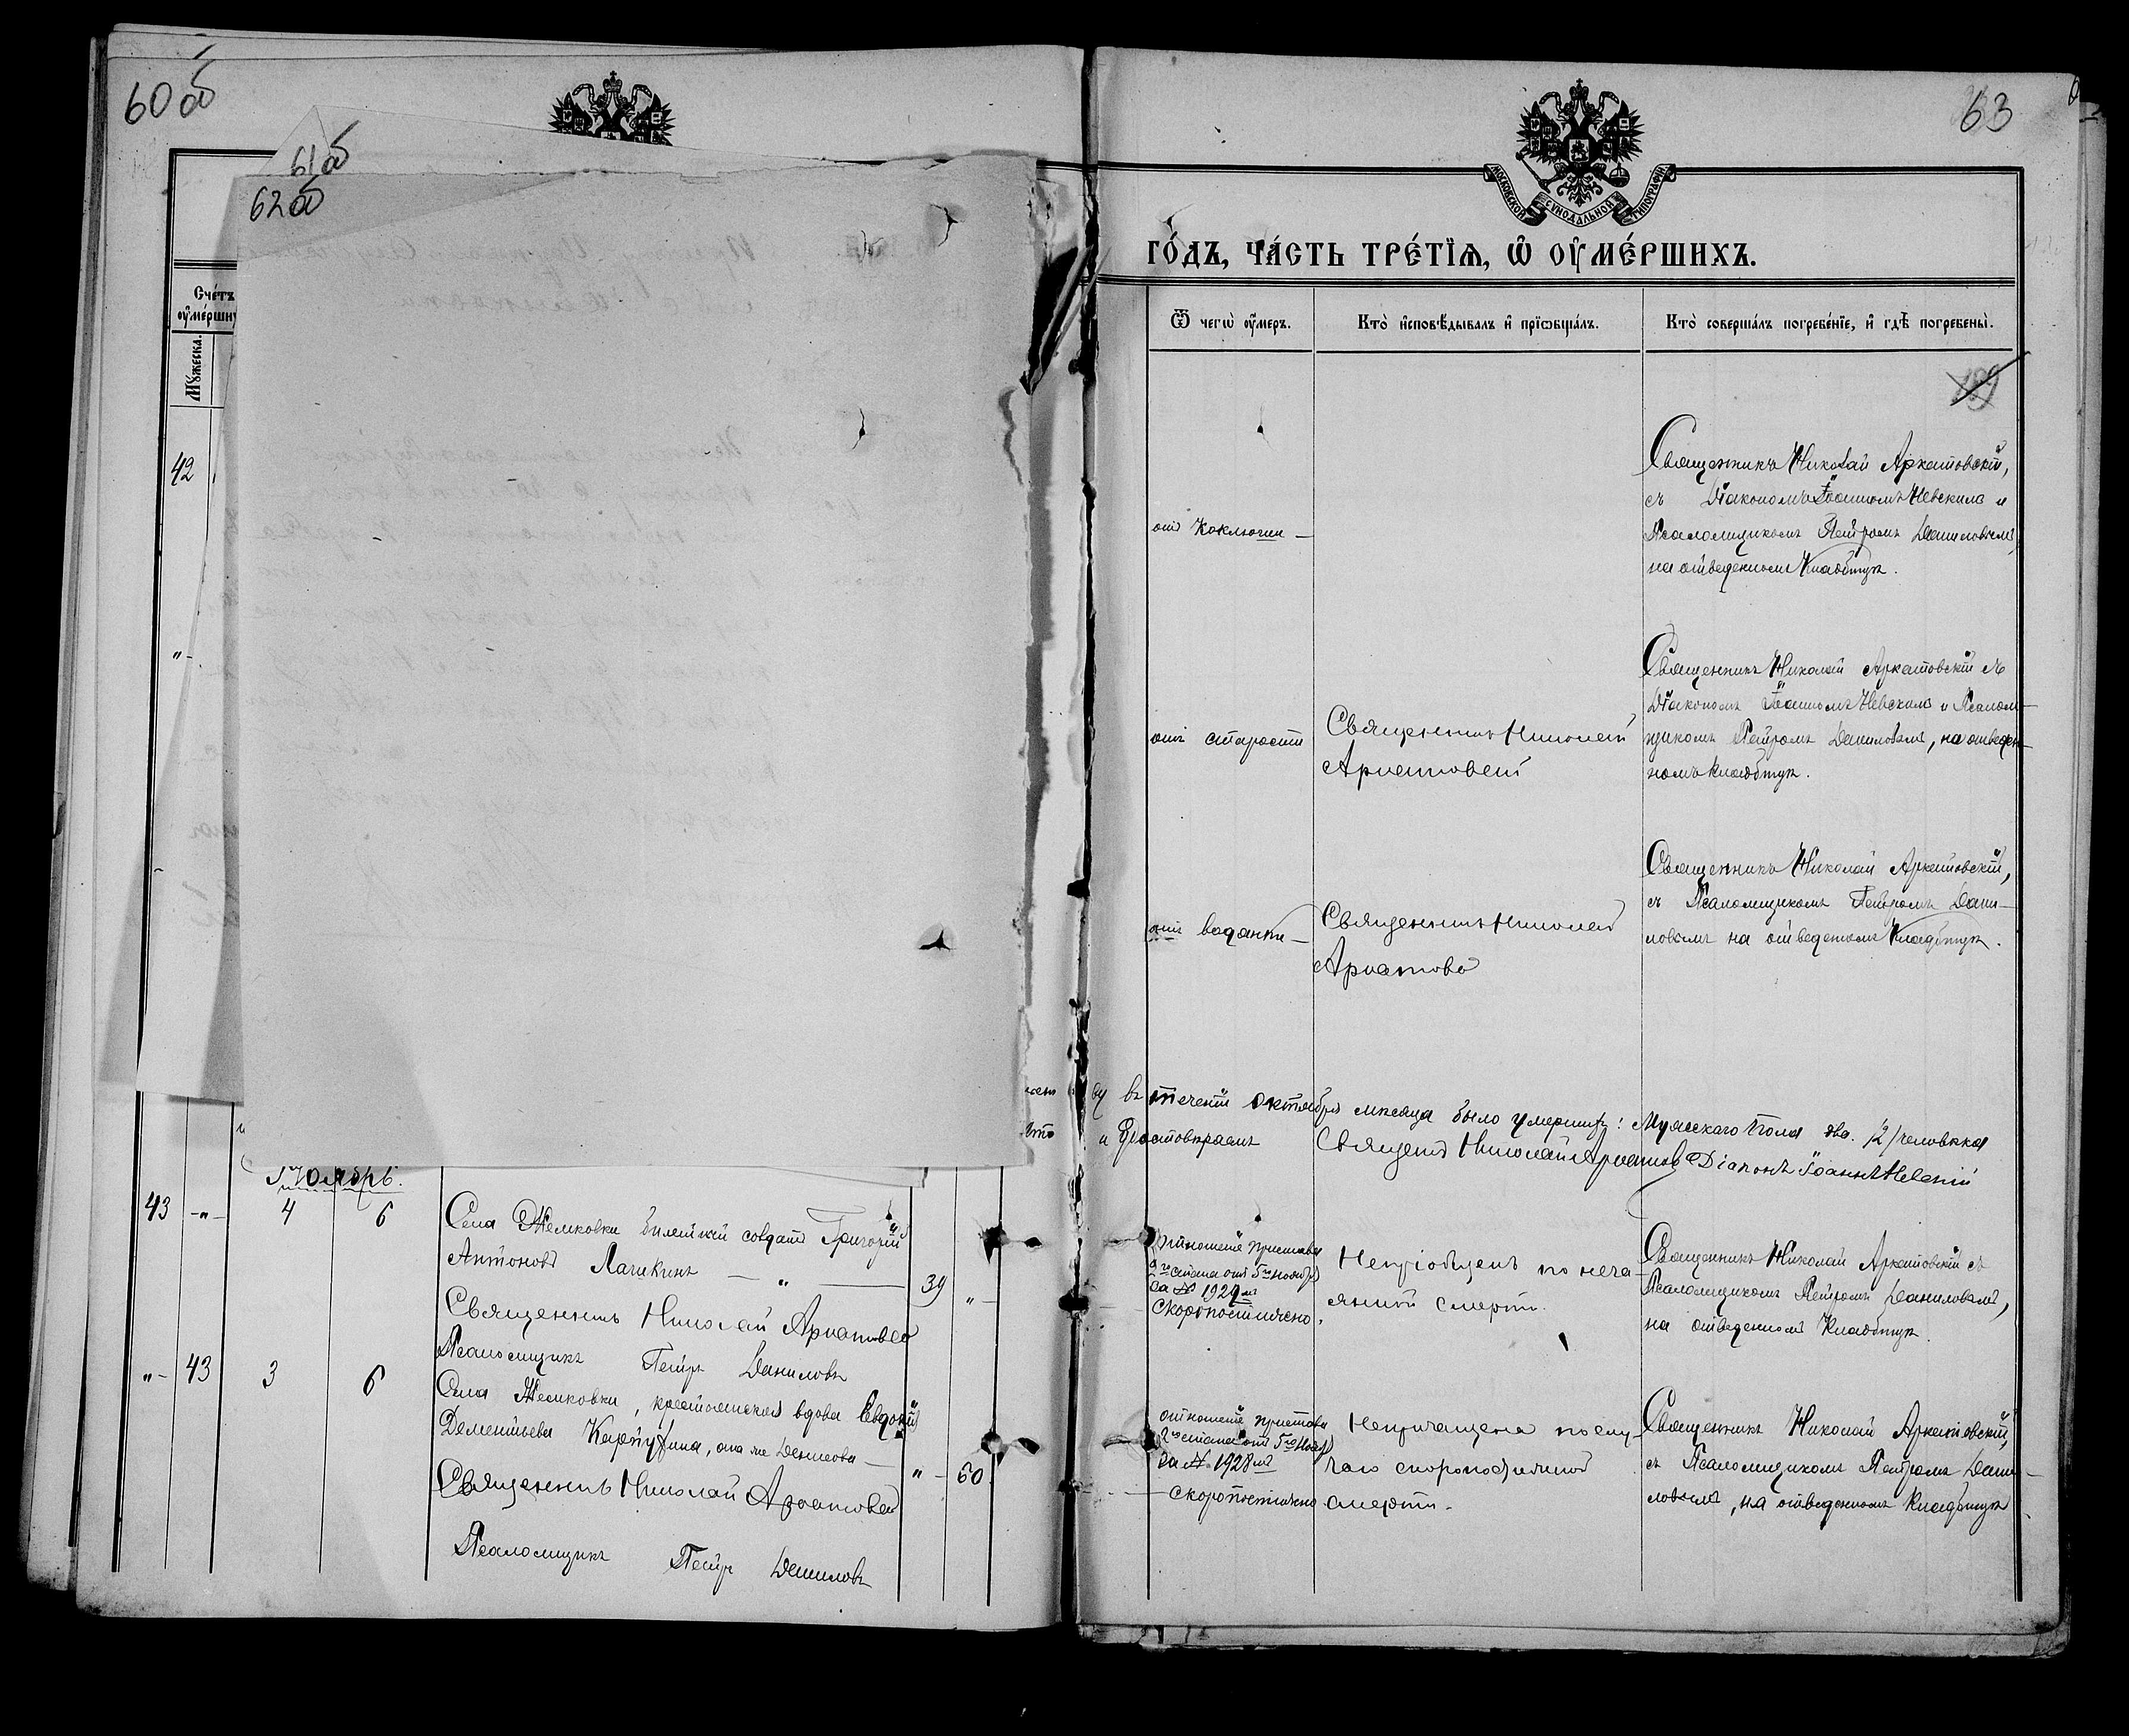 60 об
61 об
62 об
Счетъ
оумершихъ
Мужеска.
42
"-
Ноябрь.
43
-"-
4
6
Села Жемковки билетный солдатъ Григорій
Антоновъ Лачикинъ — " —
39
"-
Священникъ Николай Аркатовскій
Псаломщикъ Петръ Даниловъ
"-
43
3
6
Села Жемковки, крестьянская вдова Евдокія
Дементьева, она же Денисова —
"-
60.
Священникъ Николай Аркатовскій
Псаломщикъ Петръ Даниловъ
63
МОСКОВСКОЙ СѴНОДАЛЬНОЙ ТИПОГРАФІИ
ГО́ДЪ, ЧА́СТЬ ТРЕ́ТЇѦ, Ѡ ОУМЕ́РШИХЪ.
Ѿ чегѡ̀ оу҆́меръ.
Кто̀ и҆сповѣ́дывалъ и҆ прїѡбща́лъ.
Кто̀ соверша́лъ погребе́нїе, и҆ гдѣ̀ погребены̀.
189
отъ Коклюша —
Священникъ Николай Аркатовскій,
съ Діакономъ Іоанномъ Невскимъ и
Псаломщикомъ Петромъ Даниловымъ,
на отведенномъ Кладбищѣ.
отъ старости
Священникъ Николай
Аркатовскій
Священникъ Николай Аркатовскій съ
Діакономъ Іоанномъ Невскимъ и Псалом-
щикомъ Петромъ Даниловымъ, на отведен-
номъ кладбищѣ.
отъ водянки —
Священникъ Николай
Аркатовс
Священникъ Николай Аркатовскій,
съ Псаломщикомъ Петромъ Дани-
ловымъ на отведеномъ Кладбищѣ.
въ теченіи октября мѣсяца было умершихъ: Мужескаго пола два /2/ человѣка
и Священ Николай Аркатовс Діаконъ Іоаннъ Невскій
отношеніе Пристава
2го стана отъ 5го ноября
за № 1929мъ
Скоропостижно.
Непріобщенъ по неча-
янной смерти.
Священникъ Николай Аркатовскій съ
Псаломщикомъ Петромъ Даниловымъ,
на отведенномъ Кладбищѣ.
отношеніе Пристава
2го стана отъ 5го Нояб
за № 1928мъ
— Скоропостижно
Непричащена по слу-
чаю скоропостижной
смерти.
Священникъ Николай Аркатовскій,
съ Псаломщикомъ Петромъ Дани-
ловымъ, на отведенномъ Кладбищѣ